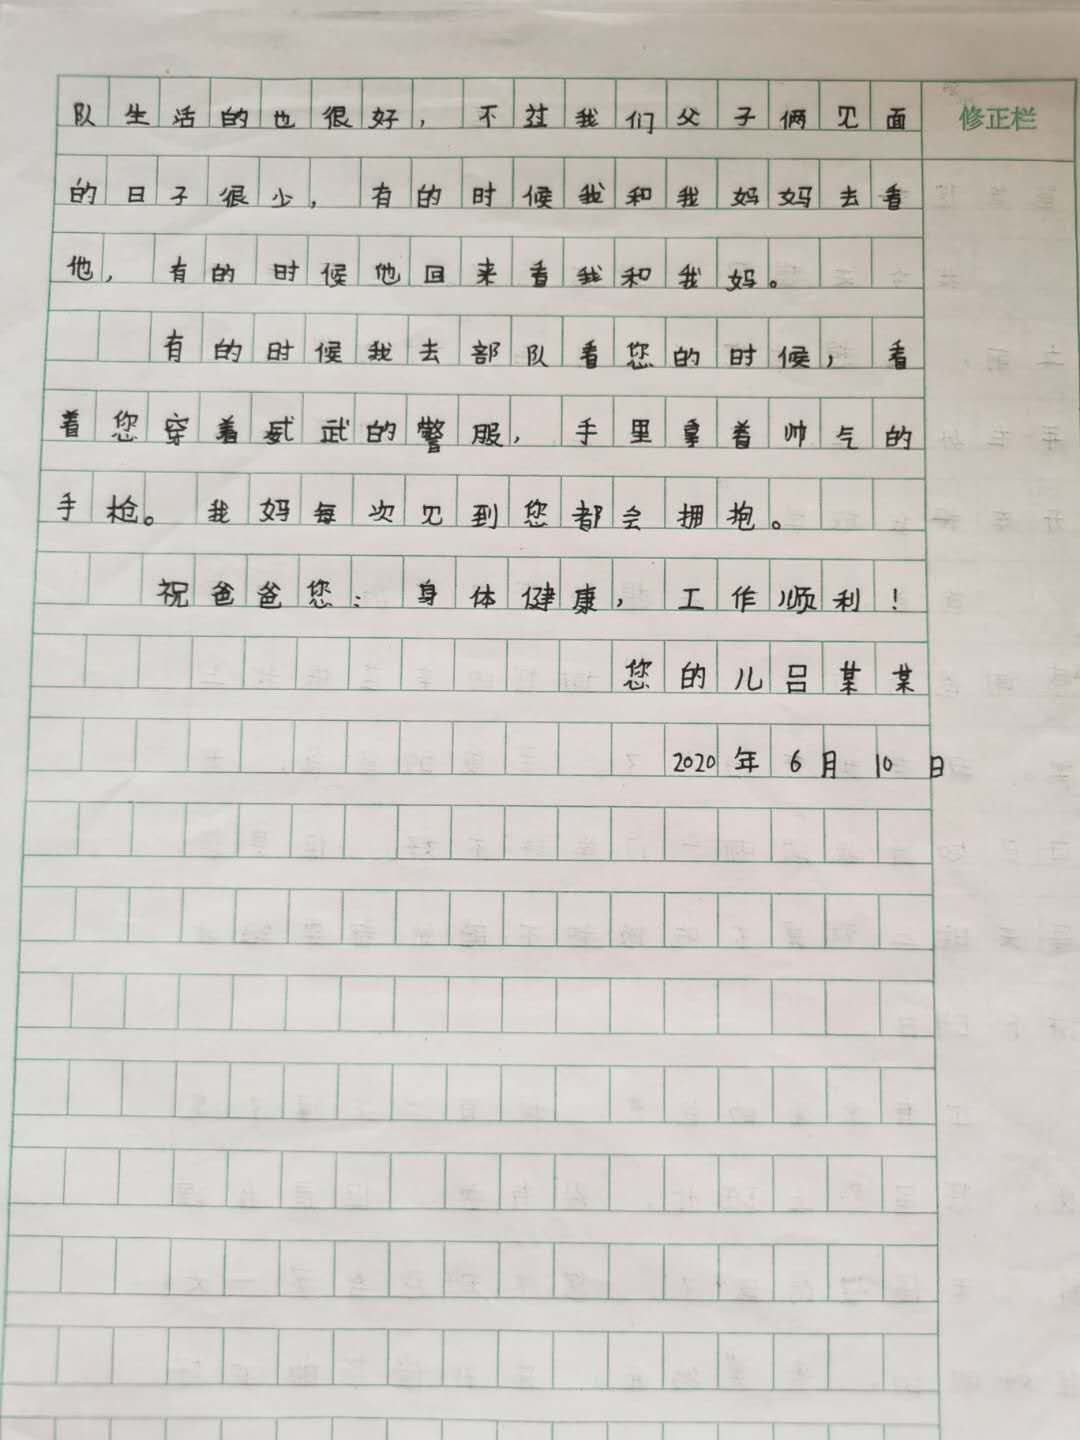 队生活的也很好，不过我们父子俩见面
修正栏
的日子很少，有的时候我和我妈妈去看
他，有的时候他回来看我和我妈。
有的时候我去部队看您的时候，看
着您穿着威武的警服，手里拿着帅气的
手枪。我妈每次见到您都会拥抱。
祝爸爸您：身体健康，工作顺利！
您的儿吕某某
2020年6月10日